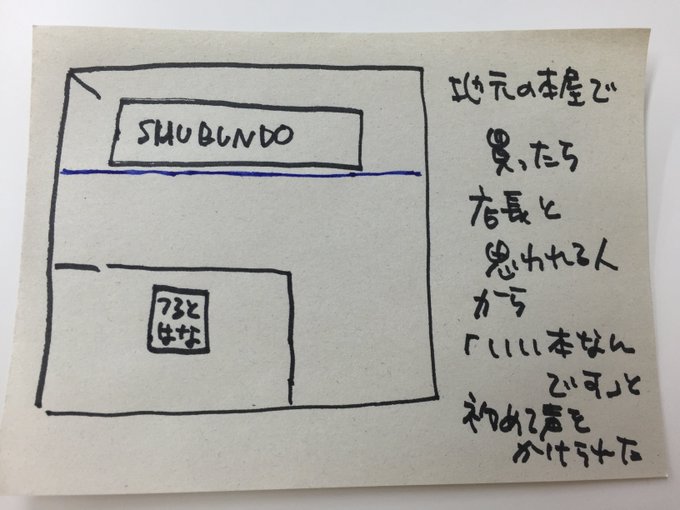 SHUBUNDO
つると
はな
地元の本屋で
買ったら
店長と
思われる人
から
「いい本なん
です」と
初めて声を
かけられた